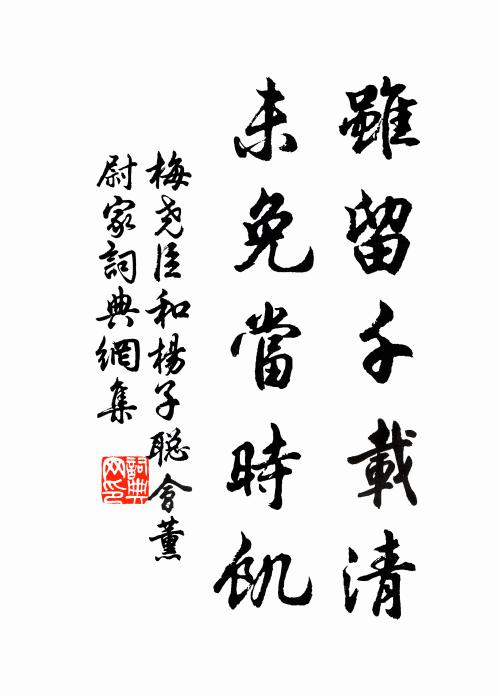 雖留千載清
未免當時飢
梅堯臣和楊子聡會董
尉家詞典網集
詞典网印